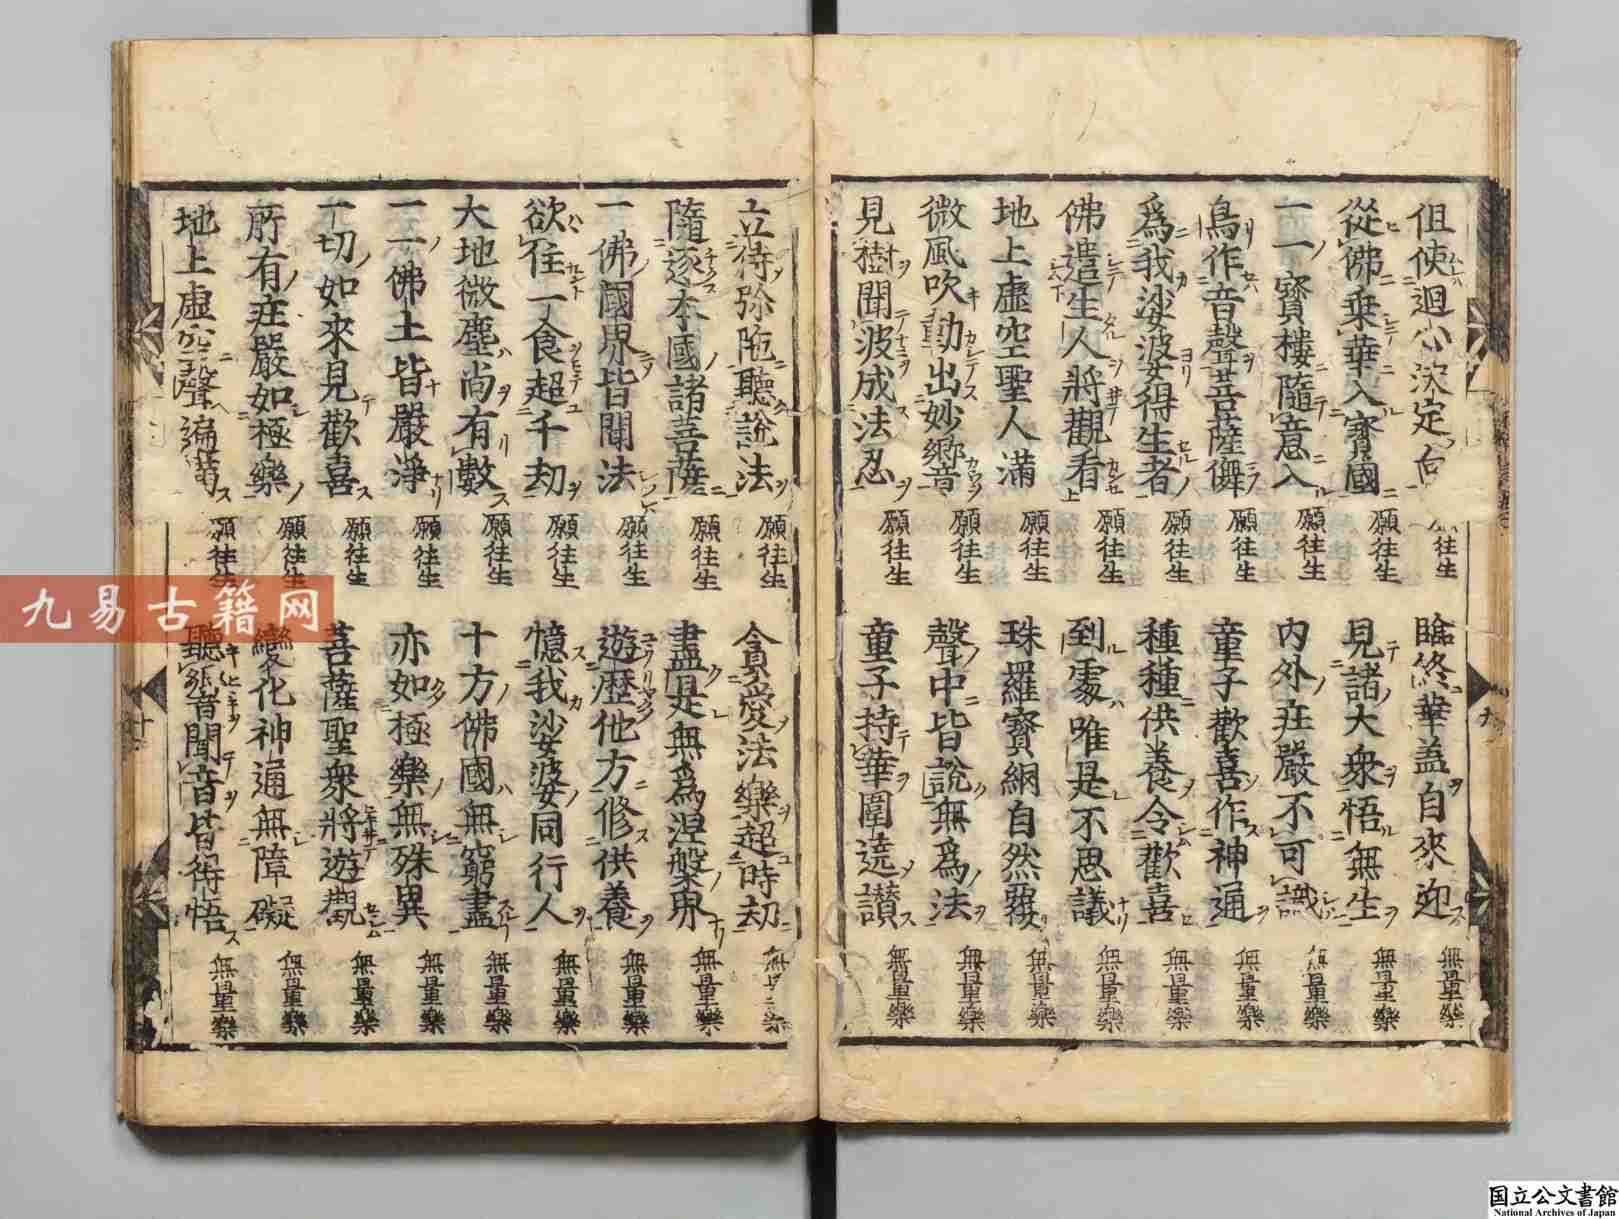 但使迴心決定向 願往生 臨終華盖自來迎 無量樂
從佛乗華入寳國 願往生 見諸大衆悟無生 無量樂
一一寳樓隨意入 願往生 内外庄嚴不可識 無量樂
鳥作音聲菩薩儛 願往生 童子歡喜作神通 無量樂
爲我娑婆得生者 願往生 種種供養令歡喜 無量樂
佛遣生人將觀看 願往生 到處唯是不思議 無量樂
地上虚空聖人滿 願往生 珠羅寳網自然覆 無量樂
微風吹動出妙響 願往生 聲中皆說無爲法 無量樂
見樹聞波成法忍 願往生 童子持華圍遶讃 無量樂
立侍弥陁聽說法 願往生 貪愛法樂超時劫 無量樂
隨逐本國諸菩薩 願往生 盡是無爲涅槃界 無量樂
一佛國界皆聞法 願往生 遊歴他方修供養 無量樂
欲住一食超千劫 願往生 憶我娑婆同行人 無量樂
大地微塵尚有數 願往生 十方佛國無窮盡 無量樂
一一佛土皆嚴淨 願往生 亦如極樂無殊異 無量樂
一切如來見歡喜 願往生 菩薩聖衆將遊觀 無量樂
所有庄嚴如極樂 願往生 變化神通無障礙 無量樂
地上虚空聲徧滿 願往生 聽響聞音皆得悟 無量樂
九易古籍网
国立公文書館
National Archives of Japan